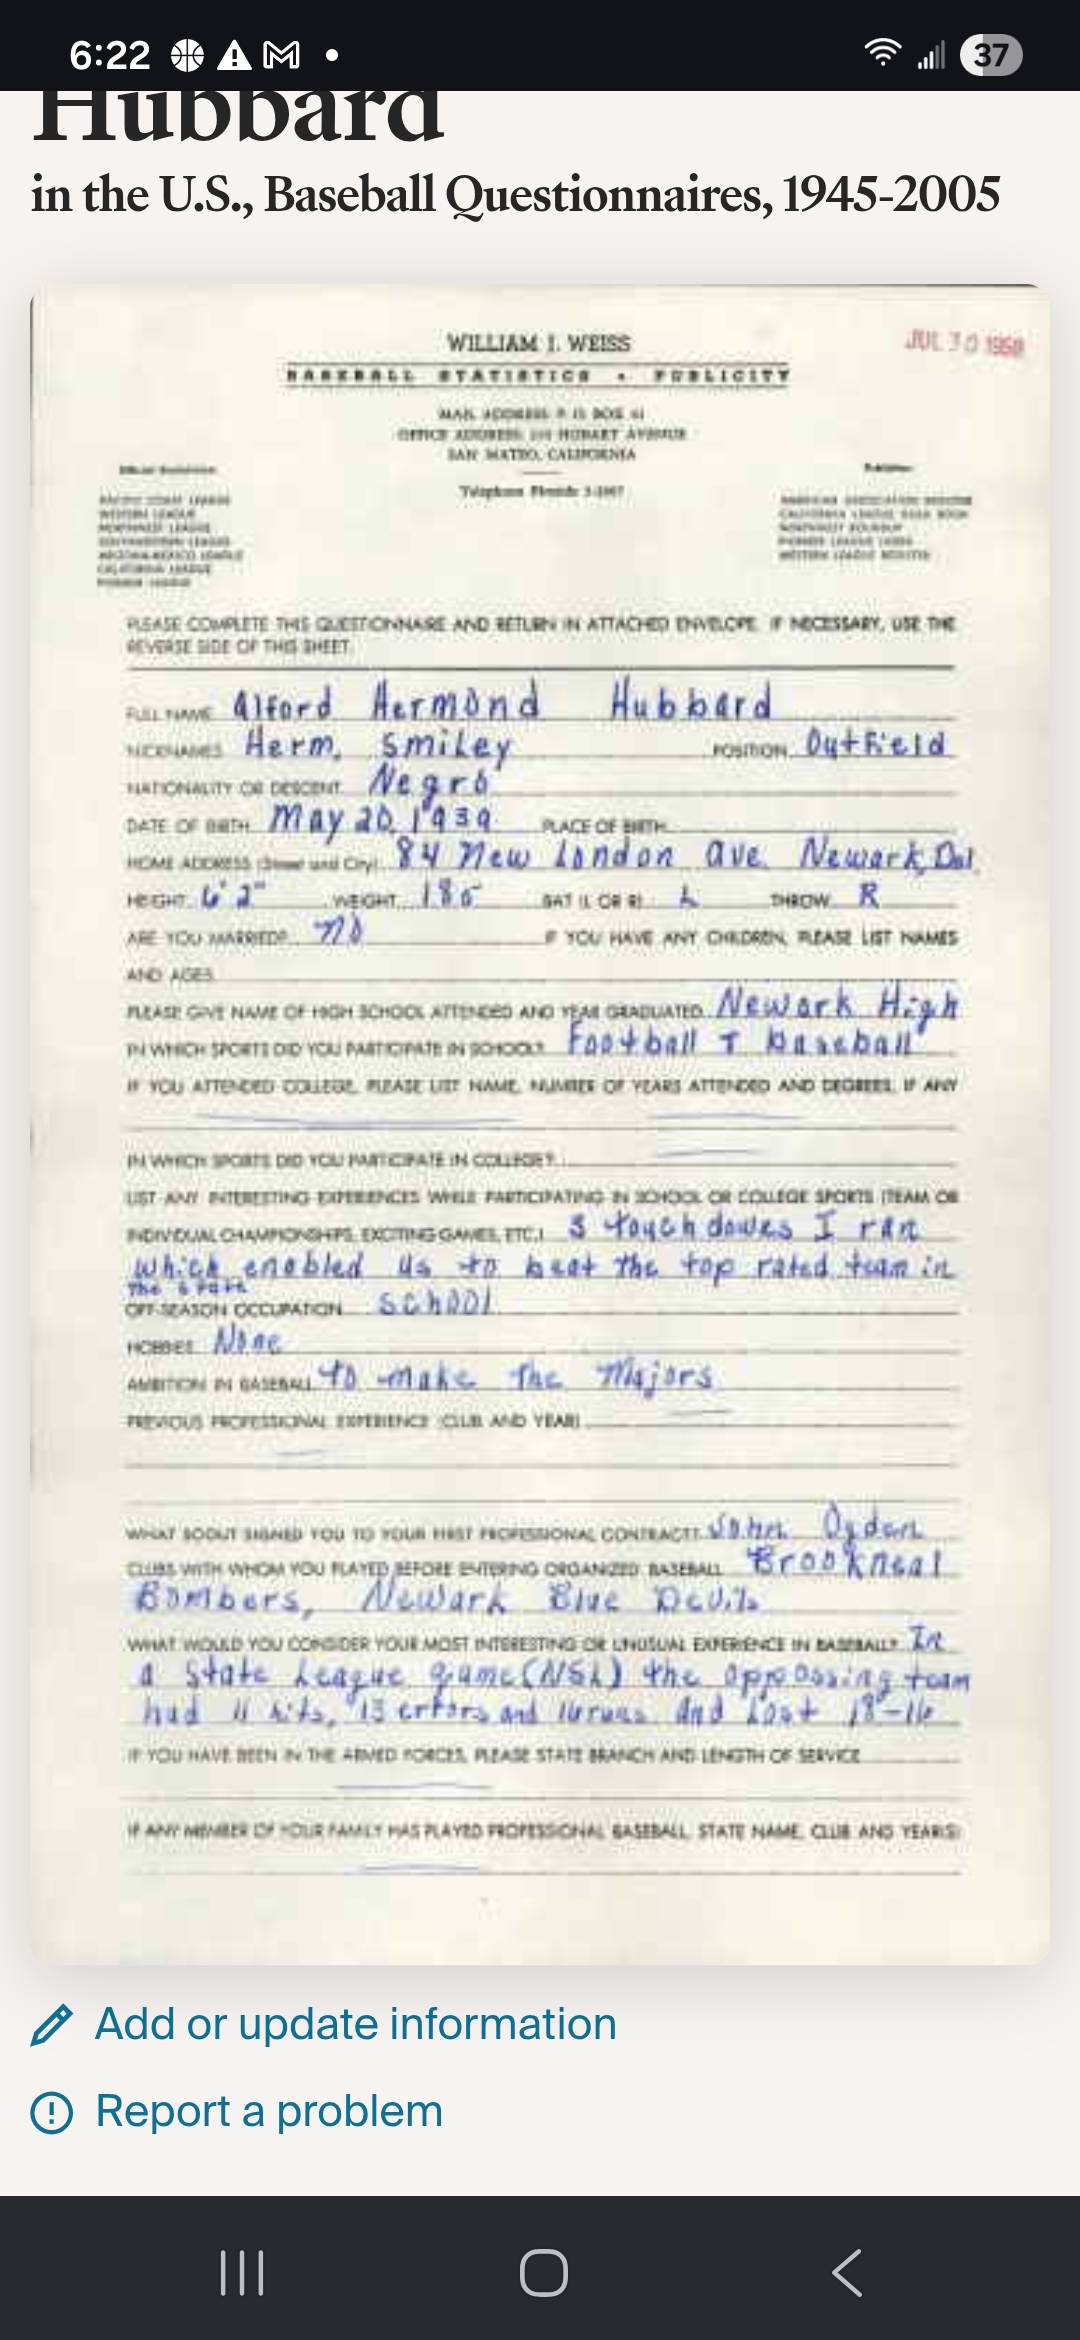 6:22
37
Hubbard
in the U.S., Baseball Questionnaires, 1945-2005
WILLIAM J. WEISS
JUL 30 1958
BASEBALL STATISTICS • PUBLICITY
MAIL ADDRESS: P. O. BOX
OFFICE ADDRESS: HOBART AVENUE
SAN MATEO, CALIFORNIA
Telephone
PACIFIC COAST LEAGUE
WESTERN LEAGUE
NORTHWEST LEAGUE
SOUTHWESTERN LEAGUE
ARIZONA-MEXICO LEAGUE
CALIFORNIA LEAGUE
PIONEER LEAGUE
PLEASE COMPLETE THIS QUESTIONNAIRE AND RETURN IN ATTACHED ENVELOPE. IF NECESSARY, USE THE
REVERSE SIDE OF THIS SHEET.
FULL NAME Alford Hermond Hubbard
NICKNAMES Herm, Smiley POSITION Outfield
NATIONALITY OR DESCENT Negro
DATE OF BIRTH May 20, 1939 PLACE OF BIRTH
HOME ADDRESS (Street and City) 84 New London ave. Newark, Del.
HEIGHT 6' 2" WEIGHT 185 BAT (L OR R) L THROW R
ARE YOU MARRIED? no IF YOU HAVE ANY CHILDREN, PLEASE LIST NAMES
AND AGES
PLEASE GIVE NAME OF HIGH SCHOOL ATTENDED AND YEAR GRADUATED Newark High
IN WHICH SPORTS DID YOU PARTICIPATE IN SCHOOL? Football + baseball
IF YOU ATTENDED COLLEGE, PLEASE LIST NAME, NUMBER OF YEARS ATTENDED AND DEGREES, IF ANY
IN WHICH SPORTS DID YOU PARTICIPATE IN COLLEGE?
LIST ANY INTERESTING EXPERIENCES WHILE PARTICIPATING IN SCHOOL OR COLLEGE SPORTS (TEAM OR
INDIVIDUAL CHAMPIONSHIPS, EXCITING GAMES, ETC.) 3 touch downs I ran
which enabled us to beat the top rated team in
the state
OFF-SEASON OCCUPATION school
HOBBIES None
AMBITION IN BASEBALL to make the Majors
PREVIOUS PROFESSIONAL EXPERIENCE (CLUB AND YEAR)
WHAT SCOUT SIGNED YOU TO YOUR FIRST PROFESSIONAL CONTRACT? John Ogden
CLUBS WITH WHOM YOU PLAYED BEFORE ENTERING ORGANIZED BASEBALL Brookneal
Bombers, Newark Blue Devils
WHAT WOULD YOU CONSIDER YOUR MOST INTERESTING OR UNUSUAL EXPERIENCE IN BASEBALL? In
a State League game (NSL) the oppossing team
had 11 hits, 13 errors and 16 runs and lost 18-16
IF YOU HAVE BEEN IN THE ARMED FORCES, PLEASE STATE BRANCH AND LENGTH OF SERVICE
IF ANY MEMBER OF YOUR FAMILY HAS PLAYED PROFESSIONAL BASEBALL, STATE NAME, CLUB AND YEAR(S)
Add or update information
Report a problem